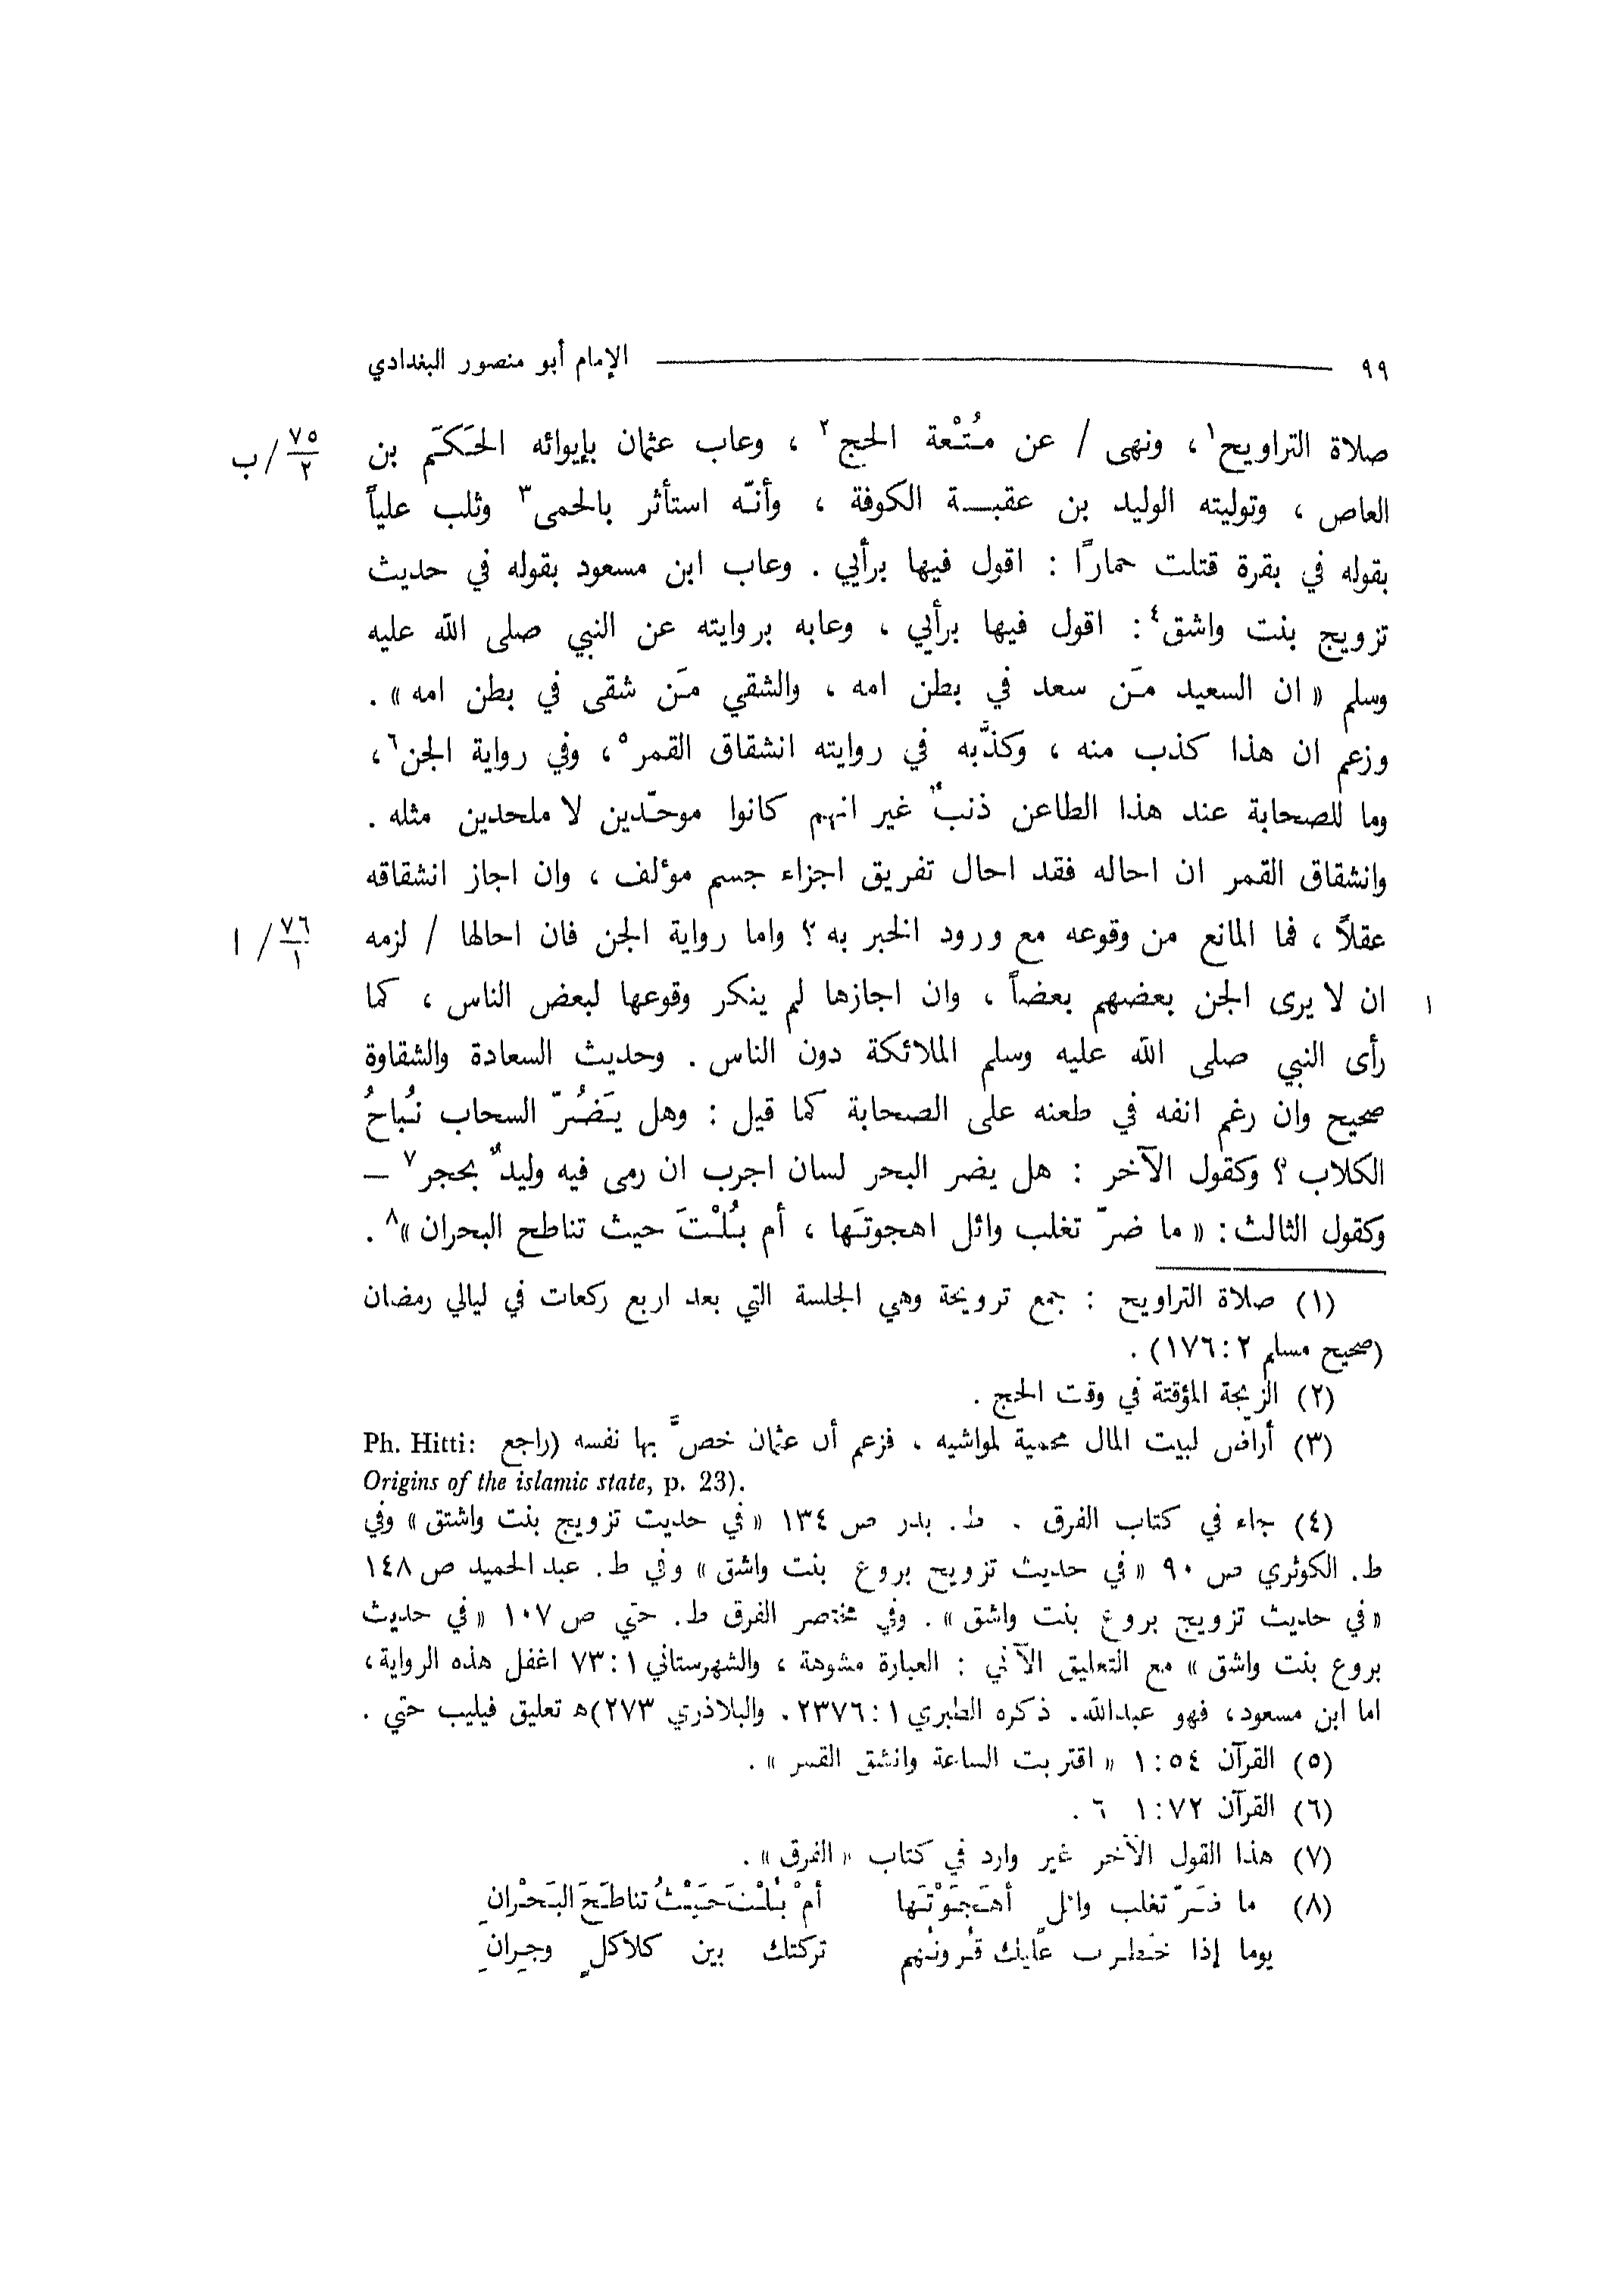 ٩٩ الإمام أبو منصور البغدادي
صلاة التراويح١ ، ونهى / عن مُتْعة الحج٢ ، وعاب عثمان بإيوائه الحَكَم بن ٧٥/٢/ب
العاص ، وتوليته الوليد بن عقبــة الكوفة ، وأنّه استأثر بالحمى٣ وثلب علياً
بقوله في بقرة قتلت حماراً : اقول فيها برأيي . وعاب ابن مسعود بقوله في حديث
تزويج بنت واشق٤ : اقول فيها برأيي ، وعابه بروايته عن النبي صلى الله عليه
وسلم « ان السعيد مَن سعد في بطن امه ، والشقي مَن شقى في بطن امه » .
وزعم ان هذا كذب منه ، وكذَّبه في روايته انشقاق القمر٥ ، وفي رواية الجن٦ ،
وما للصحابة عند هذا الطاعن ذنبٌ غير انهم كانوا موحّدين لا ملحدين مثله .
وانشقاق القمر ان احاله فقد احال تفريق اجزاء جسم مؤلف ، وان اجاز انشقاقه
عقلاً ، فما المانع من وقوعه مع ورود الخبر به ؟ واما رواية الجن فان احالها / لزمه ٧٦/١/ ا
١ ان لا يرى الجن بعضهم بعضاً ، وان اجازها لم ينكر وقوعها لبعض الناس ، كما
رأى النبي صلى الله عليه وسلم الملائكة دون الناس . وحديث السعادة والشقاوة
صحيح وان رغم انفه في طعنه على الصحابة كما قيل : وهل يَضُرّ السحاب نُباحُ
الكلاب ؟ وكقول الآخر : هل يضر البحر لسان اجرب ان رمى فيه وليدٌ بحجر٧ –
وكقول الثالث : « ما ضرّ تغلب وائل اهجوتَها ، أم بُلْتَ حيث تناطح البحران »٨ .
(١) صلاة التراويح : جمع ترويحة وهي الجلسة التي بعد اربع ركعات في ليالي رمضان
(صحيح مسلم ٢ : ١٧٦) .
(٢) الزيجة المؤقتة في وقت الحج .
(٣) أراض لبيت المال محمية لمواشيه ، فزعم أن عثمان خصَّ بها نفسه (راجع Ph. Hitti:
Origins of the islamic state, p. 23).
(٤) جاء في كتاب الفرق . ط. بدر ص ١٣٤ « في حديت تزويج بنت واشتق » وفي
ط. الكوثري ص ٩٠ « في حديث تزويح بروع بنت واشق » وفي ط. عبد الحميد ص ١٤٨
« في حديث تزويج بروع بنت واشق » . وفي مختصر الفرق ط. حتي ص ١٠٧ « في حديث
بروع بنت واشق » مع التعليق الآتي : العبارة مشوهة ، والشهرستاني ١ : ٧٣ اغفل هذه الرواية،
اما ابن مسعود، فهو عبدالله. ذكره الطبري ١ : ٢٣٧٦. والبلاذري ٢٧٣)ه تعليق فيليب حتي .
(٥) القرآن ٥٤ : ١ « اقتربت الساعة وانشق القمر » .
(٦) القرآن ٧٢ : ١ ٦ .
(٧) هذا القول الآخر غير وارد في كتاب « الفرق » .
(٨) ما ضَرّ تغلب وائل أهَجَوْتَها أمْ بُلْتَ حَيْثُ تناطَحَ البَحْرانِ
يوما إذا خطرت عليك قُرونُهم تركتك بين كلاكلٍ وجِرانِ